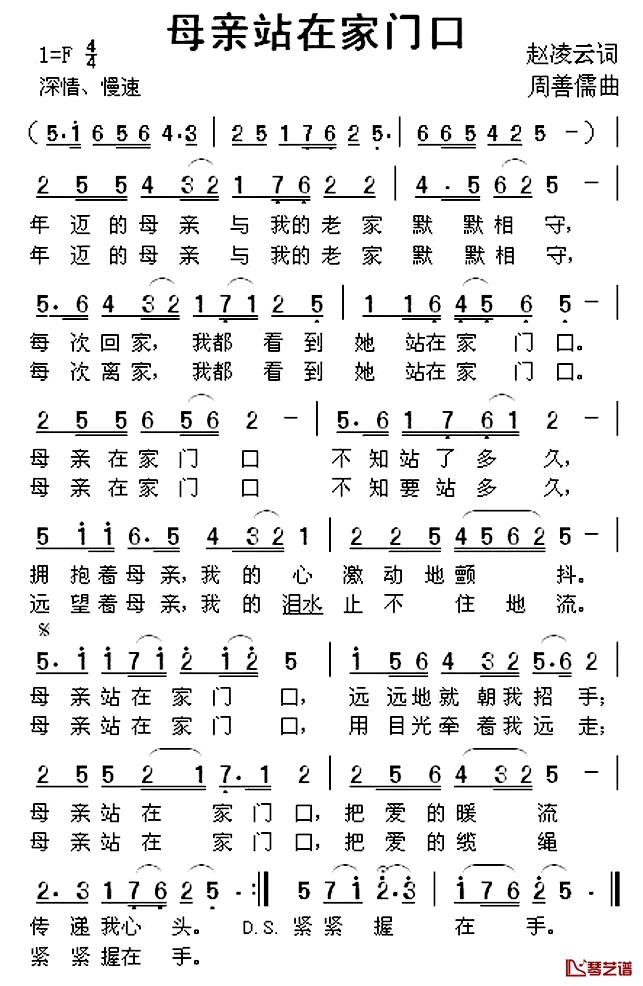 母亲站在家门口
1=F 4/4
赵凌云词
深情、慢速
周善儒曲
（5·i 6 5 6 4·3 | 2 5 1 7 6 2 5· | 6 6 5 4 2 5 －）|
2 5 5 4 3 2 1 7 6 2 2 | 4· 5 6 2 5 － |
年迈的母亲与我的老家默默相守，
年迈的母亲与我的老家默默相守，
5· 6 4 3 2 1 7 1 2 5 | 1 1 6 4 5 6 5 － |
每次回家，我都看到她站在家门口。
每次离家，我都看到她站在家门口。
2 5 5 6 5 6 2 － | 5· 6 1 7 6 1 2 － |
母亲在家门口不知站了多久，
母亲在家门口不知要站多久，
5 i i 6· 5 4 3 2 1 | 2 2 5 4 5 6 2 5 － |
拥抱着母亲，我的心激动地颤抖。
远望着母亲，我的泪水止不住地流。
𝄋
5· i i 7 i 2 i 2 5 | i 5 6 4 3 2 5·6 2 |
母亲站在家门口，远远地就朝我招手；
母亲站在家门口，用目光牵着我远走；
2 5 5 2 1 7· 1 2 | 2 2 5 6 4 3 2 5 － |
母亲站在家门口，把爱的暖流
母亲站在家门口，把爱的缆绳
2· 3 1 7 6 2 5 － :‖ 5 7 i 2·3 | i 7 6 5 － ‖
传递我心头。D.S.紧紧握在手。
紧紧握在手。
琴艺谱